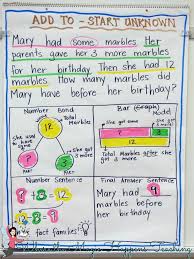 ADD TO - START UNKNOWN
Mary had some marbles. Her
parents gave her 3 more marbles
for her birthday. Then she had 12
marbles. How many marbles did
Mary have before her birthday?
Number Bond
Total
Marbles
12
3
?
Part
Part
Bar (Graph)
Model
she got some
more
?
3
12
Total Marbles after she
got some more
Number Sentence
? + 3 = 12
12 - 3 = 9
fact families!
Final Answer Sentence
Mary had 9
marbles before
her birthday
Teaching